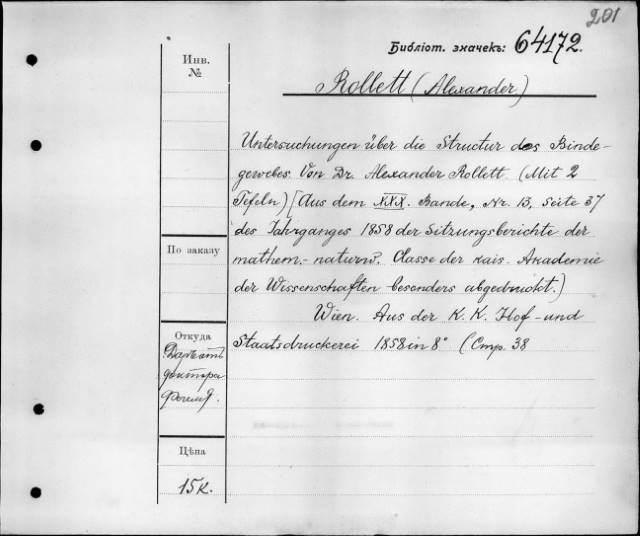 201
Библіот. значекъ: 64172.
Инв.
№
Rollett (Alexander)
Untersuchungen über die Structur des Binde-
gewebes. Von Dr. Alexander Rollett. (Mit 2
Tafeln) [Aus dem XXX. Bande, Nr. 13, Seite 37
des Jahrganges 1858 der Sitzungsberichte der
mathem.-naturw. Classe der kais. Akademie
der Wissenschaften besonders abgedruckt.)
Wien. Aus der K. K. Hof-und
Staatsdruckerei 1858 in 8° (Стр. 38
По заказу
Откуда
доктора
Цѣна
15 к.